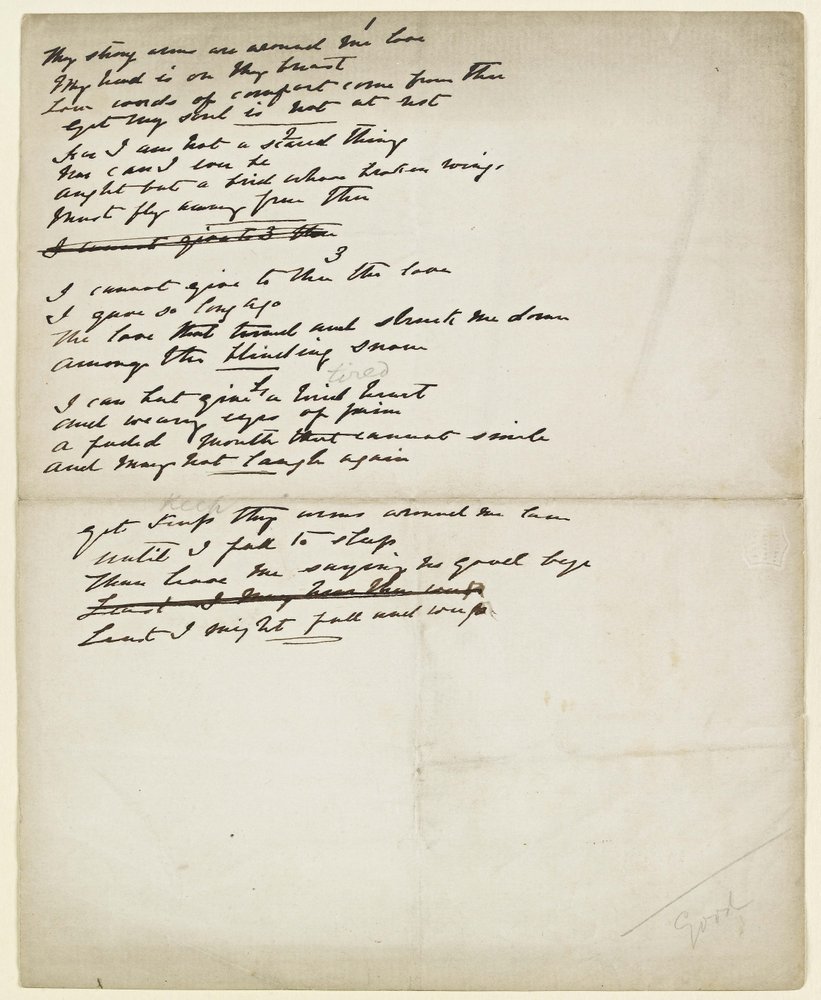 1
Thy strong arms are around me love
My head is on thy breast
Low words of comfort come from thee
Yet my soul is not at rest
2
For I am not a scared thing
Nor can I ever be
aught but a bird whose broken wing.
Must fly away from thee
I cannot give to thee
3
I cannot give to thee the love
I gave so long ago
The love that turned and struck me down
among the blinding snow
tired
I can but give a tired heart
and weary eyes of pain
a faded mouth that cannot smile
and may not laugh again
Keep
yet keep thy arms around me love
until I fall to sleep
Then leave me saying no good bye
Least I may hear thee weep
Least I might fall and weep
Good